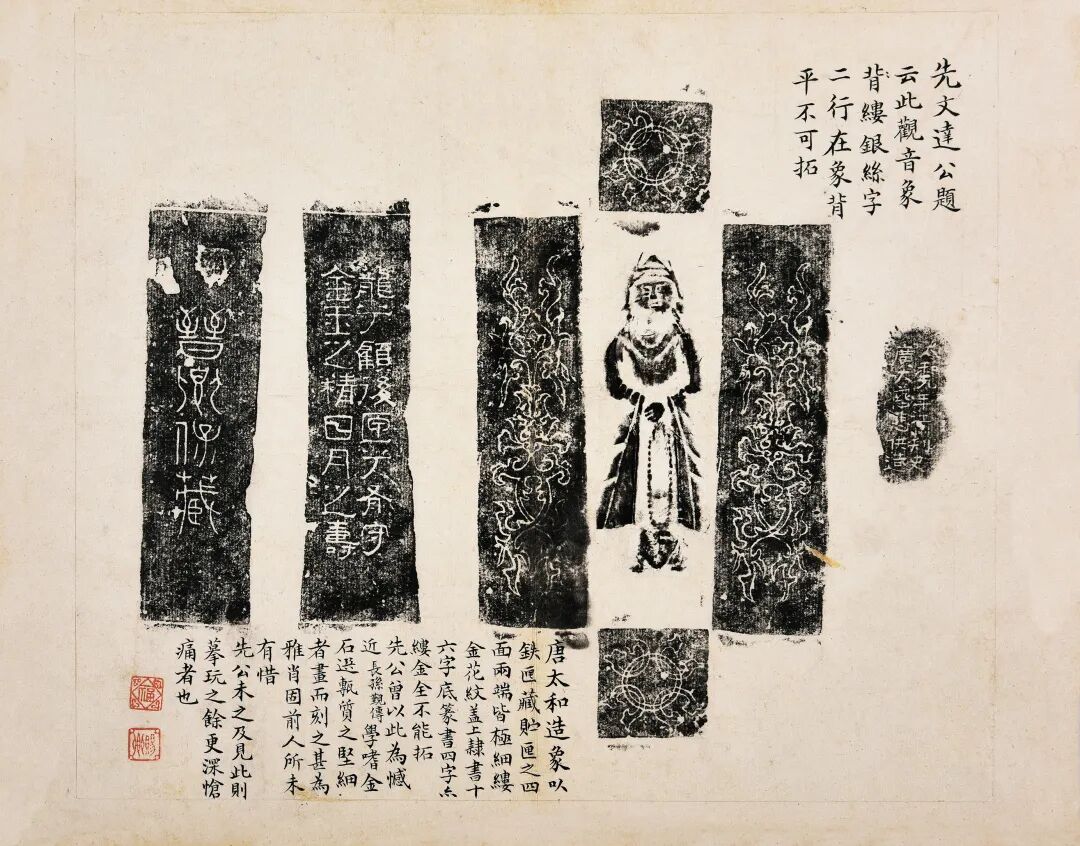 先文達公題
云此觀音象
背縷銀絲字
二行在象背
平不可拓
龍顧後
金玉之精日月之壽
晉卿保藏
唐太和造象以
鉄匣藏貯匣之四
面兩端皆極細縷
金花紋盖上隸書十
六字底篆書四字亦
縷金全不能拓
先公曾以此為憾
近長孫覲傳學嗜金
石選甎質之堅細
者畫而刻之甚為
雅肖固前人所未
有惜
先公未之及見此則
摹玩之餘更深愴
痛者也